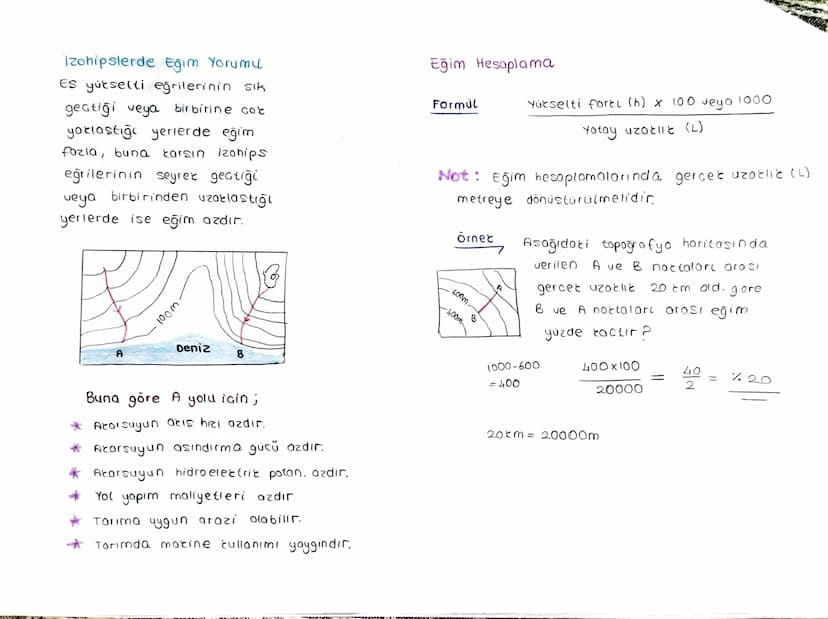 İzohipslerde Eğim Yorumu
Eş yükselti eğrilerinin sık
geçtiği veya birbirine çok
yaklaştığı yerlerde eğim
fazla, buna karşın izohips
eğrilerinin seyrek geçtiği
veya birbirinden uzaklaştığı
yerlerde ise eğim azdır.
100m
A
DENİZ
B
Buna göre A yolu için;
* Akarsuyun akış hızı azdır.
* Akarsuyun aşındırma gücü azdır.
* Akarsuyun hidroelektrik potan. azdır.
* Yol yapım maliyetleri azdır
* Tarıma uygun arazi olabilir.
* Tarımda makine kullanımı yaygındır.
Eğim Hesaplama
Formül
Yükselti farkı (h) x 100 veya 1000
Yatay uzaklık (L)
Not: Eğim hesaplamalarında gerçek uzaklık (L)
metreye dönüştürülmelidir.
Örnek
Aşağıdaki topoğrafya haritasında
verilen A ve B noktaları arası
gerçek uzaklık 20 km old. göre
B ve A noktaları arası eğim
yüzde kaçtır?
A
600m
B
400m
1000-600
=400
400x100
20000
=
40
2
= % 20
20km = 20000m